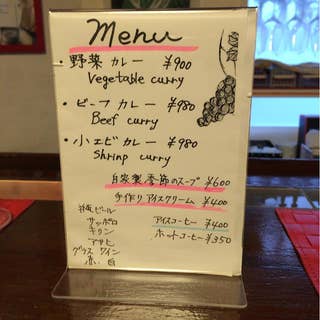 Menu
・野菜 カレー ¥900
Vegetable curry
・ビーフ カレー ¥980
Beef curry
・小エビ カレー ¥980
Shrimp curry
自家製 季節のスープ ¥600
手作り アイスクリーム ¥400
アイスコーヒー ¥400
ホットコーヒー ¥350
ビール
サッポロ
キリン
アサヒ
グラス ワイン
赤、白